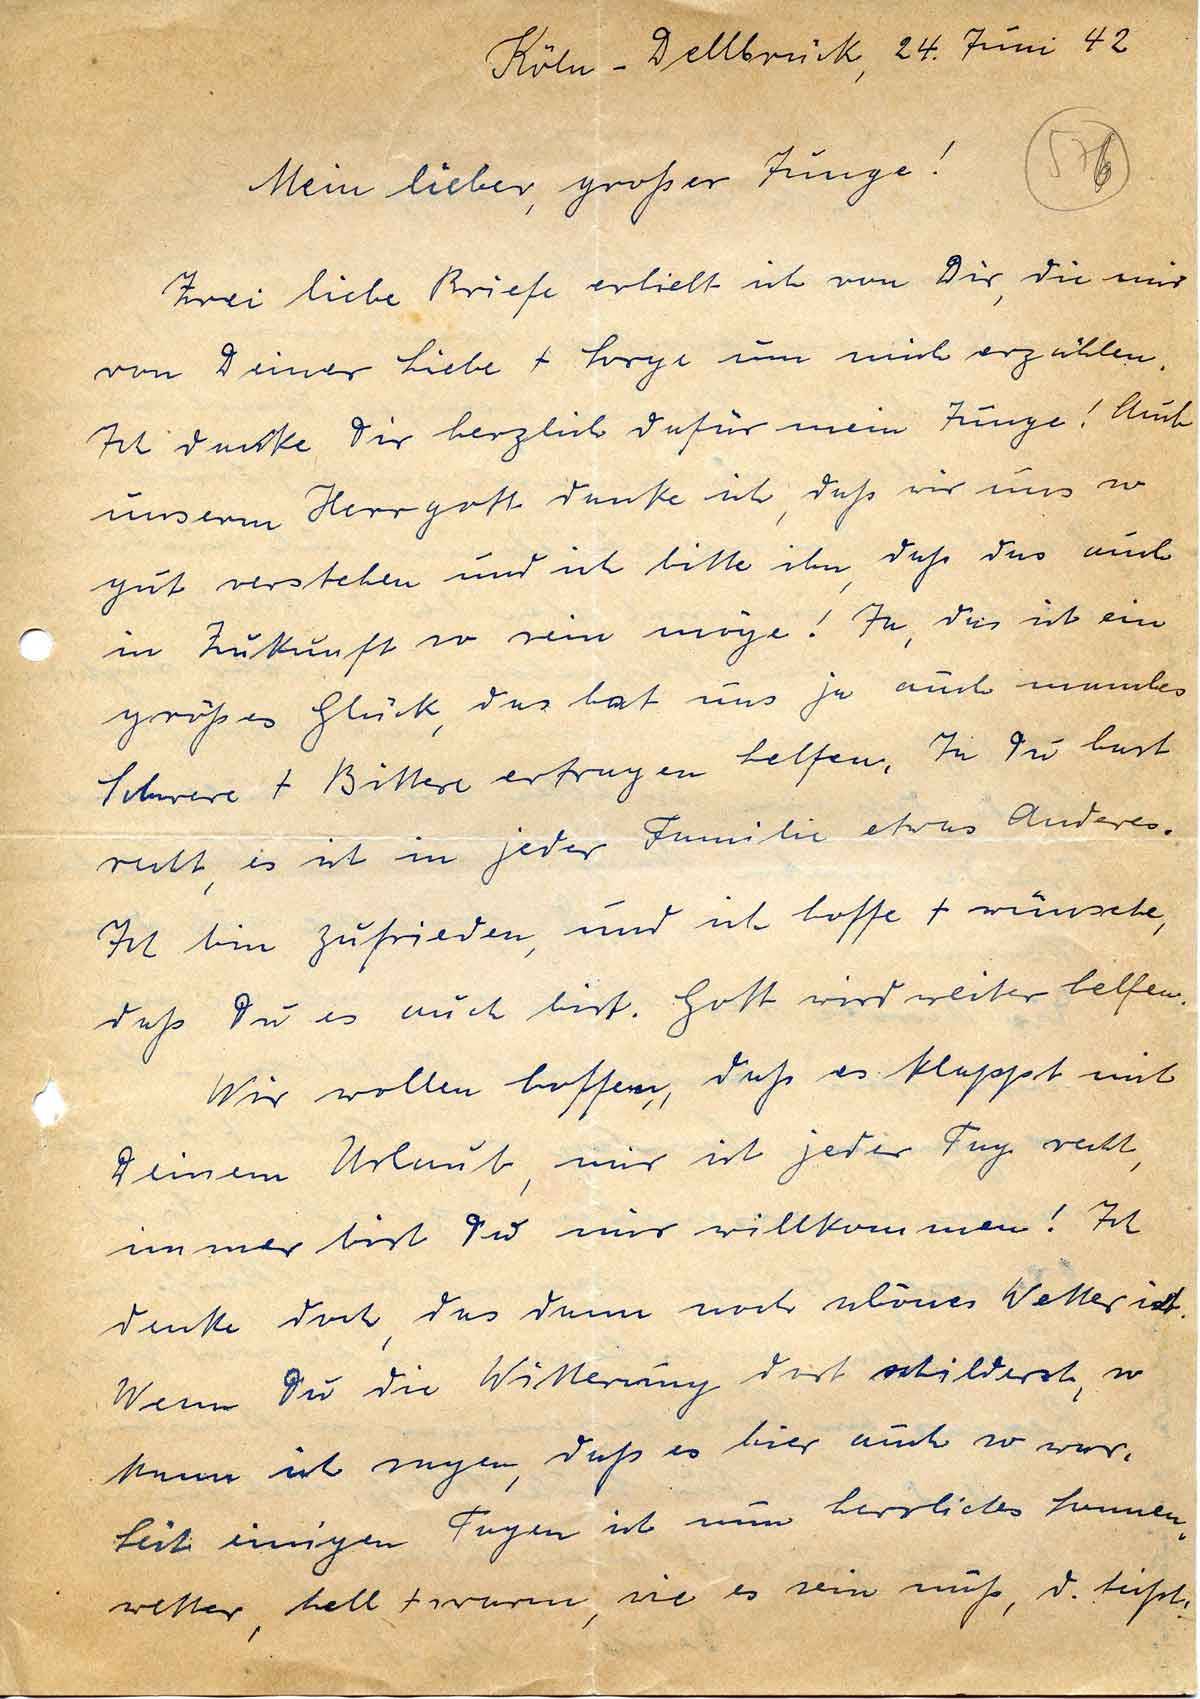 Köln - Dellbrück, 24. Juni 42
Mein lieber, großer Junge!
Zwei liebe Briefe erhielt ich von Dir, die mir
von Deiner Liebe + Sorge um mich erzählen.
Ich danke Dir herzlich dafür mein Junge! Auch
unserm Herrgott danke ich, daß wir uns so
gut verstehen und ich bitte ihn, daß das auch
in Zukunft so sein möge! Ja, das ist ein
großes Glück, das hat uns ja auch manches
Schwere + Bittere ertragen helfen. Ja Du hast
recht, es ist in jeder Familie etwas Anderes.
Ich bin zufrieden, und ich hoffe + wünsche,
daß Du es auch bist. Gott wird weiter helfen.
Wir wollen hoffen, daß es klappt mit
Deinem Urlaub, mir ist jeder Tag recht,
immer bist Du mir willkommen! Ich
denke doch, das dann noch schönes Wetter ist.
Wenn Du die Witterung dort schilderst, so
kann ich sagen, daß es hier auch so war.
Seit einigen Tagen ist nun herrliches Sonnen-
wetter, hell + warm, wie es sein muß, d. heißt: